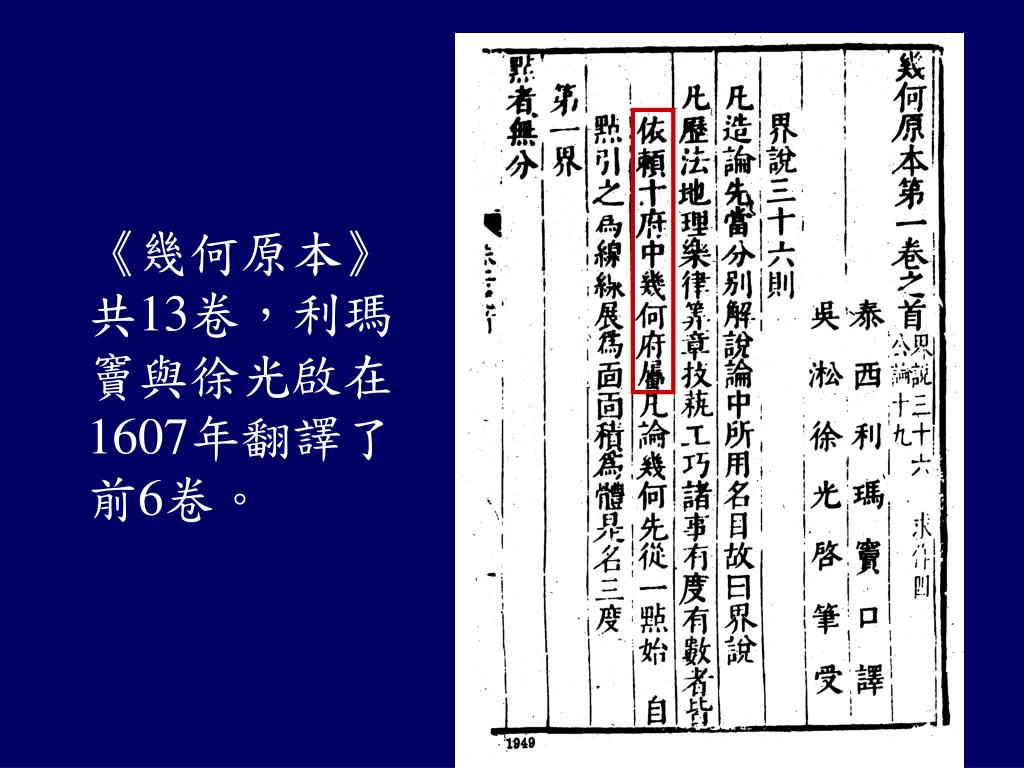 《幾何原本》
共13卷，利瑪
竇與徐光啟在
1607年翻譯了
前6卷。
幾何原本第一卷之首
界說三十六
公論十九
求作四
泰西利瑪竇口譯
吳淞徐光啓筆受
界說三十六則
凡造論先當分別解說論中所用名目故曰界說
凡歷法地理樂律筭章技藝工巧諸事有度有數者皆
依賴十府中幾何府屬凡論幾何先從一點始 自
點引之爲線線展爲面面積爲體是名三度
第一界
點者無分
1949